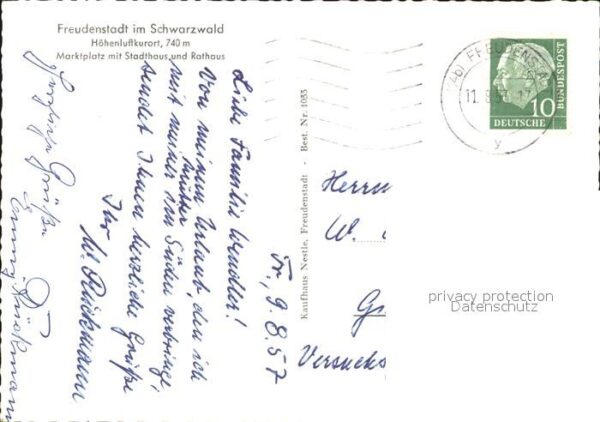 Freudenstadt im Schwarzwald
Höhenluftkurort, 740 m
Marktplatz mit Stadthaus und Rathaus
Fr, 9.8.57
Liebe Familie Wendler!
Von meinem Urlaub, den ich
mit meiner Mutter im Süden verbringe,
sendet Ihnen herzliche Grüße
Ihr
W. Rückmann
Herzliche Grüße
Kaufhaus Nestle, Freudenstadt - Best. Nr. 1053
FREUDENSTA
11.8.57
y
10
DEUTSCHE
BUNDESPOST
Herrn
W.
Versuchs
privacy protection
Datenschutz